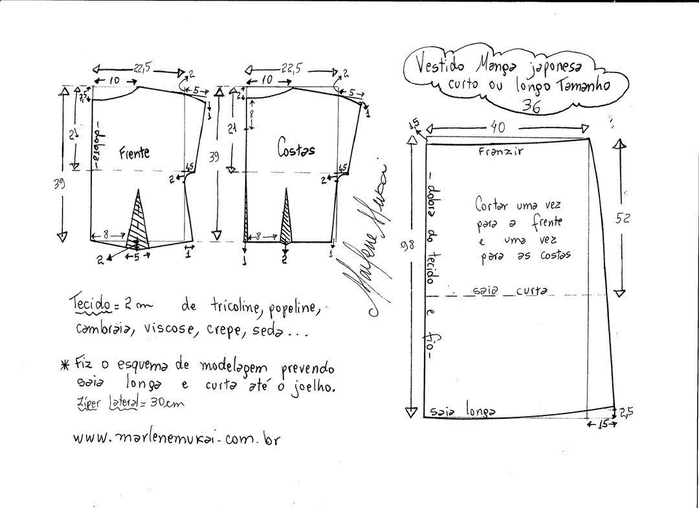 Vestido Manga japonesa
curto ou longo Tamanho
36
22,5
2
10
5
7,5
1
21
-dobra-
Frente
39
1,5
2
8
2
5
1
22,5
2
10
5
8
1
21
Costas
39
1,5
2
8
1
2
1
Marlene Mukai
40
1,5
Franzir
- dobra do tecido e fio -
Cortar uma vez
para a frente
e uma vez
para as costas
52
98
saia curta
saia longa
2,5
15
Tecido = 2m de tricoline, popeline,
cambraia, viscose, crepe, seda...
* Fiz o esquema de modelagem prevendo
saia longa e curta até o joelho.
Zíper Lateral = 30cm
www.marlenemukai.com.br